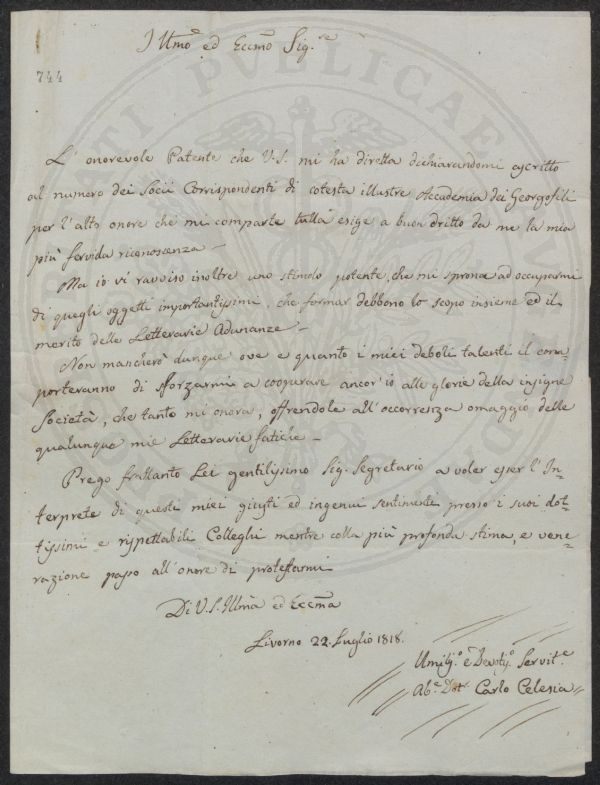 Illmo ed Eccmo Sig.re
744
L' onorevole Patente che V.S. mi ha diretta dichiarandomi ascritto
al numero dei Socii Corrispondenti di cotesta illustre Accademia dei Georgofili
per l'alto onore che mi comparte tutta esige a buon dritto da me la mia
più fervida riconoscenza -
Ma io vi ravviso inoltre uno stimolo potente, che mi sprona ad occuparmi
di quegli oggetti importantissimi, che formar debbono lo scopo insieme ed il
merito delle Letterarie Adunanze -
Non mancherò dunque ove e quanto i miei deboli talenti il com=
porteranno di sforzarmi a cooperare ancor'io alle glorie della insigne
Società, che tanto mi onora, offrendole all'occorrenza omaggio delle
qualunque mie Letterarie fatiche -
Prego frattanto Lei gentilissimo Sig. Segretario a voler esser l'In=
terprete di questi miei giusti ed ingenui sentimenti presso i suoi dot=
tissimi e rispettabili Colleghi mentre colla più profonda stima, e vene=
razione passo all'onore di protestarmi
Di V.S. Illma ed Eccma
Livorno 22. Luglio 1818.
Umilis.o e Devotis.o Servit.e
Ab.e Dot.r Carlo Celesia